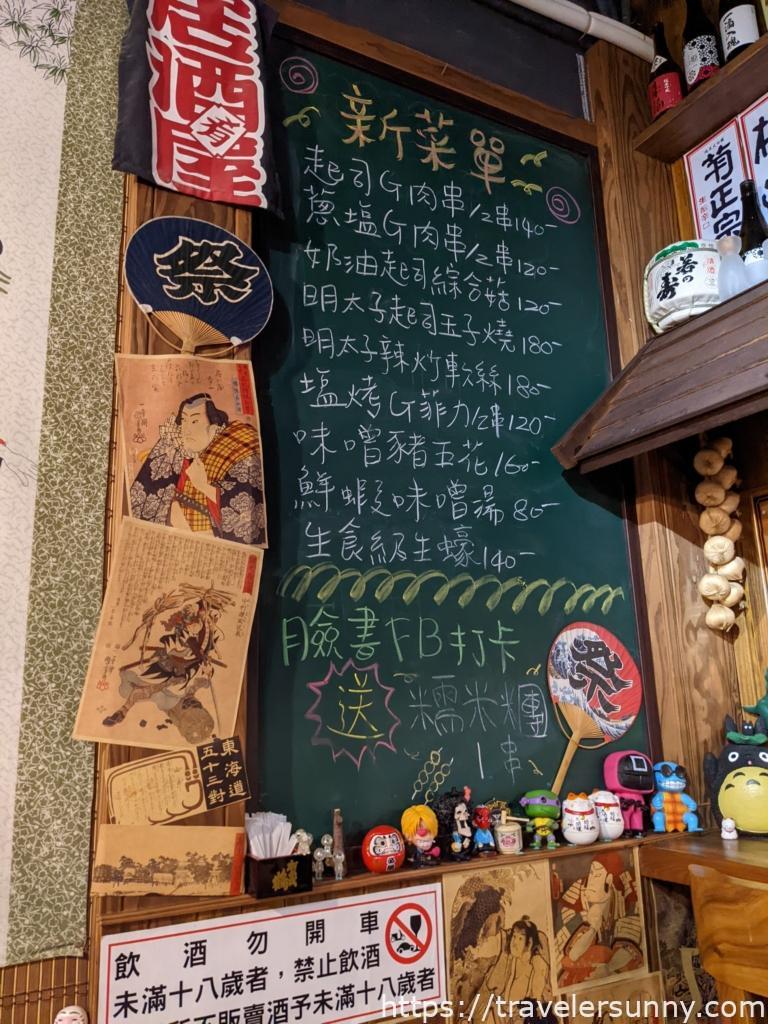 居酒屋
新菜單
起司G肉串/2串140-
蔥塩G肉串/2串120-
奶油起司綜合菇120-
明太子起司玉子燒180-
明太子辣炒軟絲180-
塩烤G菲力/2串120-
味噌豬五花160-
鮮蝦味噌湯80-
生食級生蠔140-
臉書FB打卡
送 糯米糰
1串
祭
祭
菊正宗
東海道
五十三對
飲酒勿開車
未滿十八歲者，禁止飲酒
不販賣酒予未滿十八歲
https://travelersunny.com